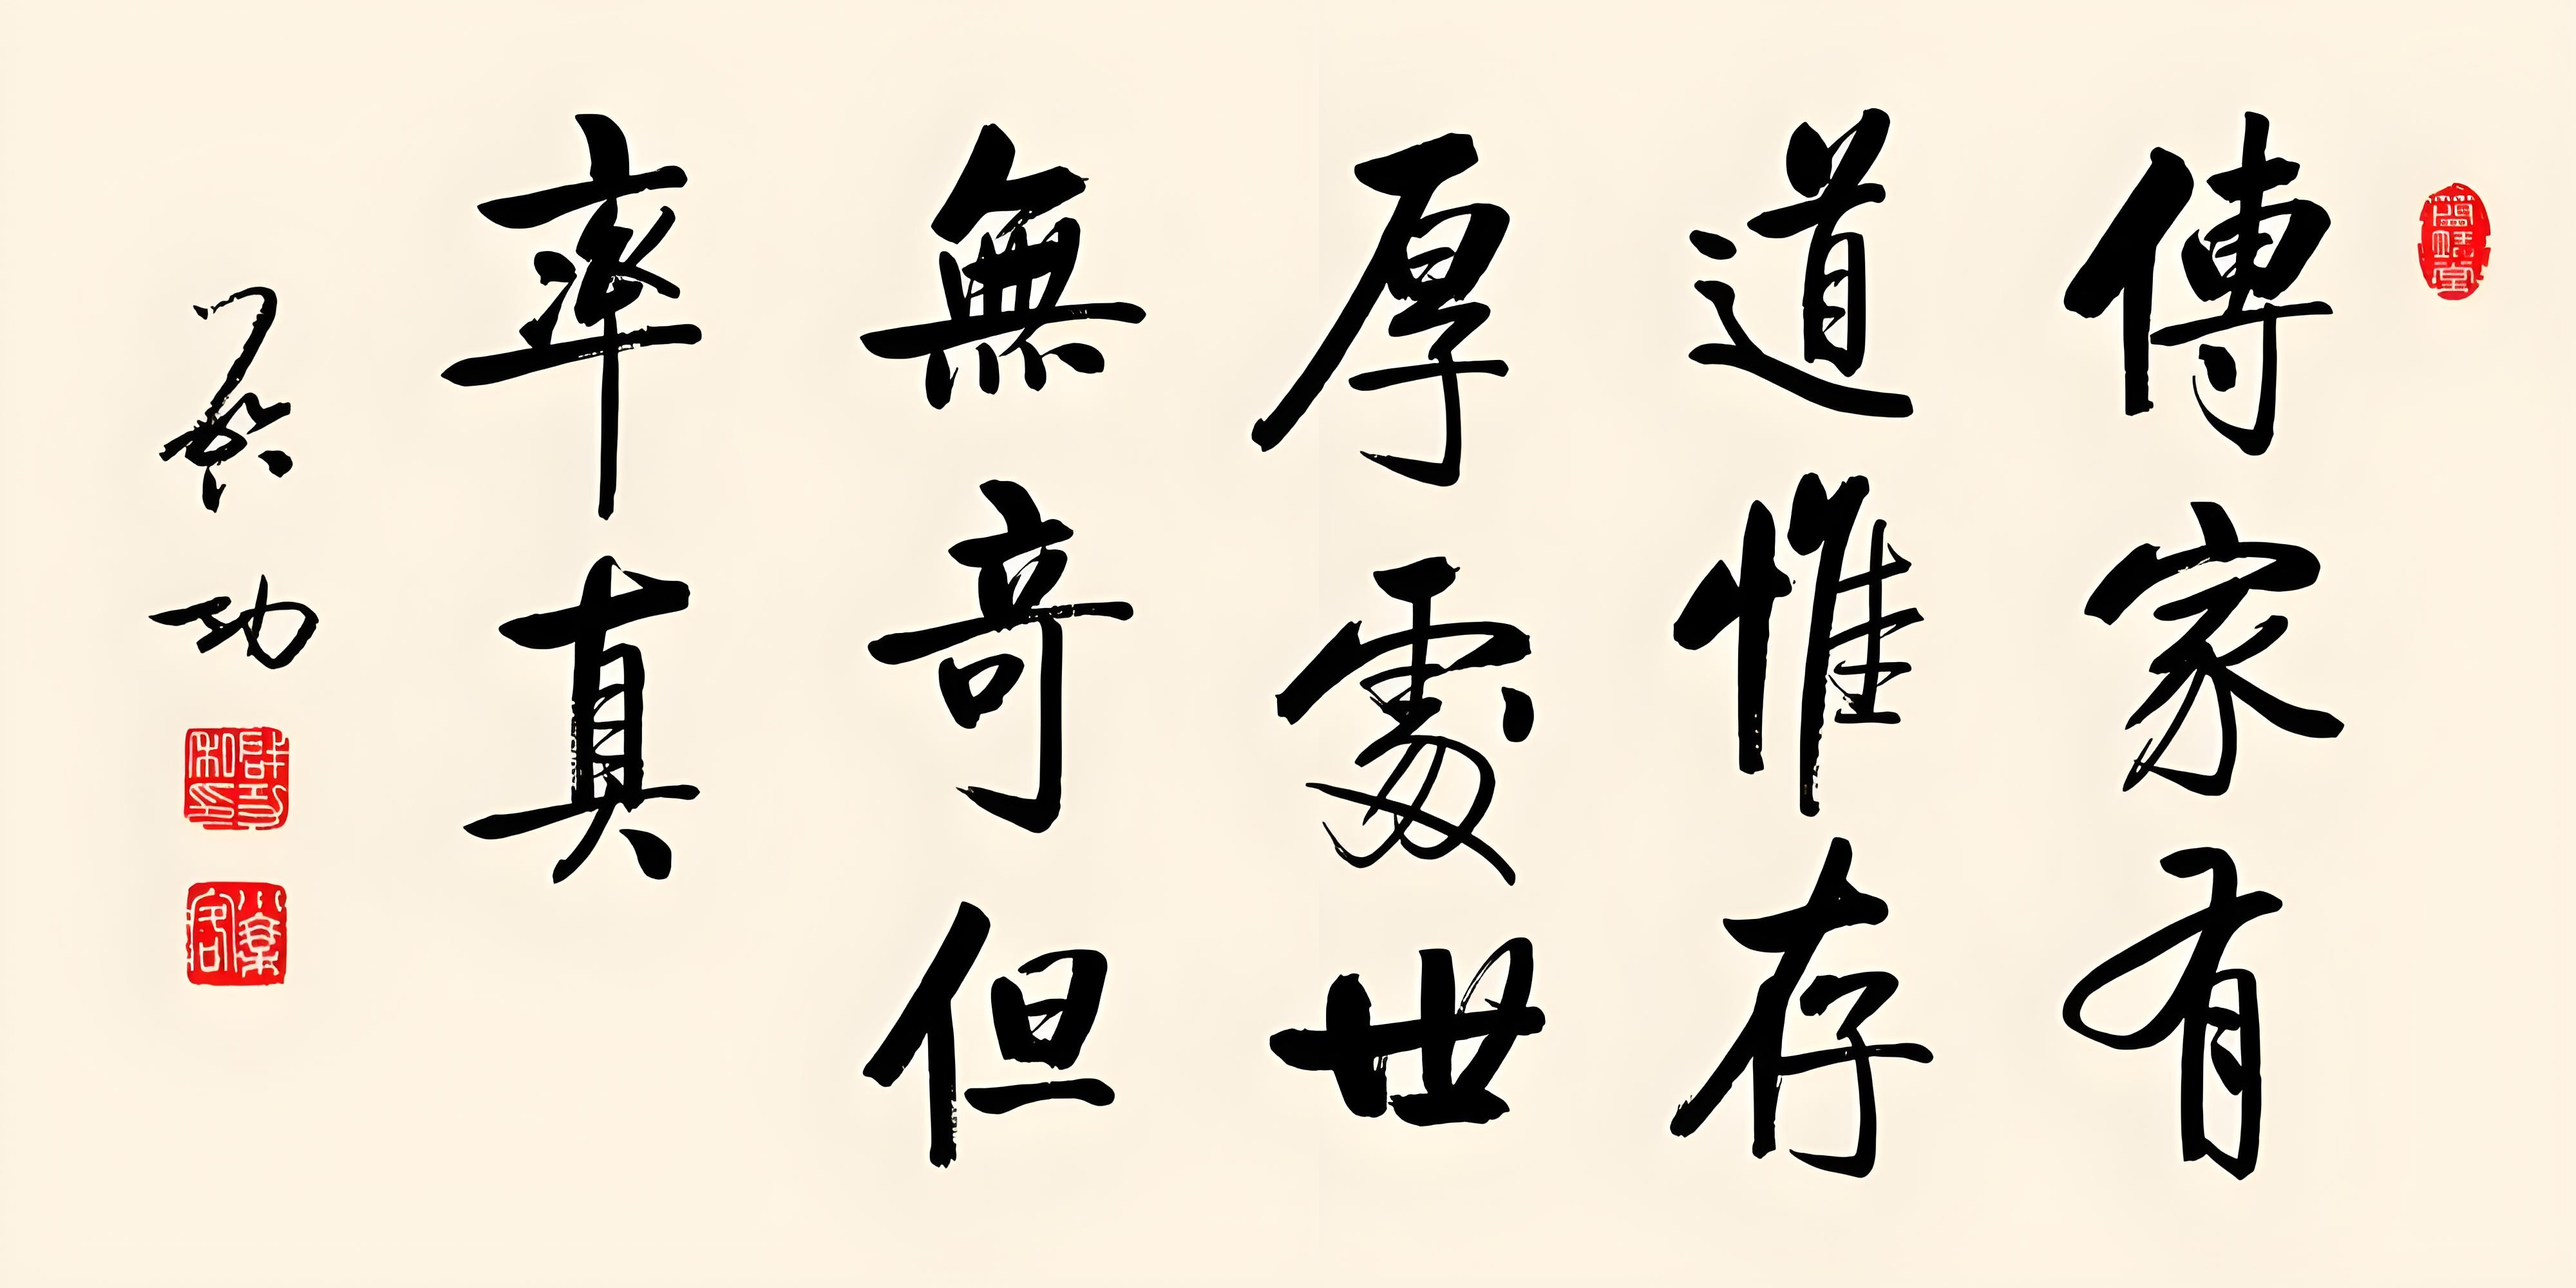 傳家有
道惟存
厚處世
無奇但
率真
啟功